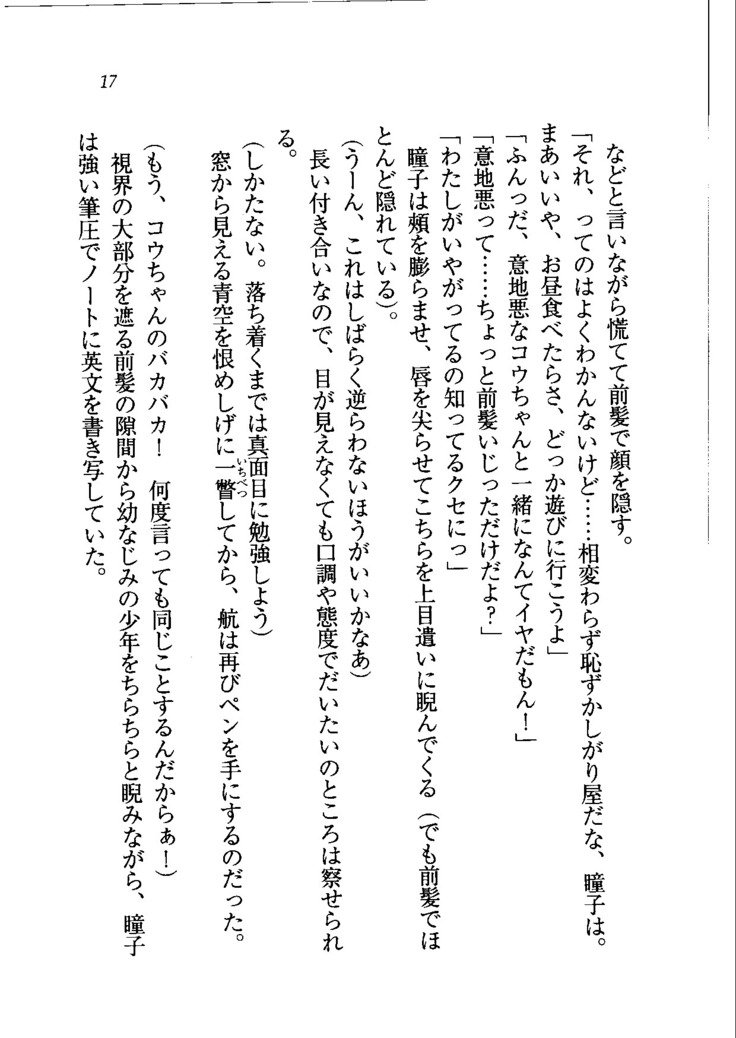 17
などと言いながら慌てて前髪で顔を隠す。
「それ、ってのはよくわかんないけど……相変わらず恥ずかしがり屋だな、瞳子は。
まあいいや、お昼食べたらさ、どっか遊びに行こうよ」
「ふんっだ、意地悪なコウちゃんと一緒になんてイヤだもん！」
「意地悪って……ちょっと前髪いじっただけだよ？」
「わたしがいやがってるの知ってるクセにっ」
瞳子は頰を膨らませ、唇を尖らせてこちらを上目遣いに睨んでくる（でも前髪でほ
とんど隠れている）。
（うーん、これはしばらく逆らわないほうがいいかなあ）
長い付き合いなので、目が見えなくても口調や態度でだいたいのところは察せられ
る。
（しかたない。落ち着くまでは真面目に勉強しよう）
窓から見える青空を恨めしげに一瞥いちべつしてから、航は再びペンを手にするのだった。
（もう、コウちゃんのバカバカ！　何度言っても同じことするんだからぁ！）
視界の大部分を遮る前髪の隙間から幼なじみの少年をちらちらと睨みながら、瞳子
は強い筆圧でノートに英文を書き写していた。